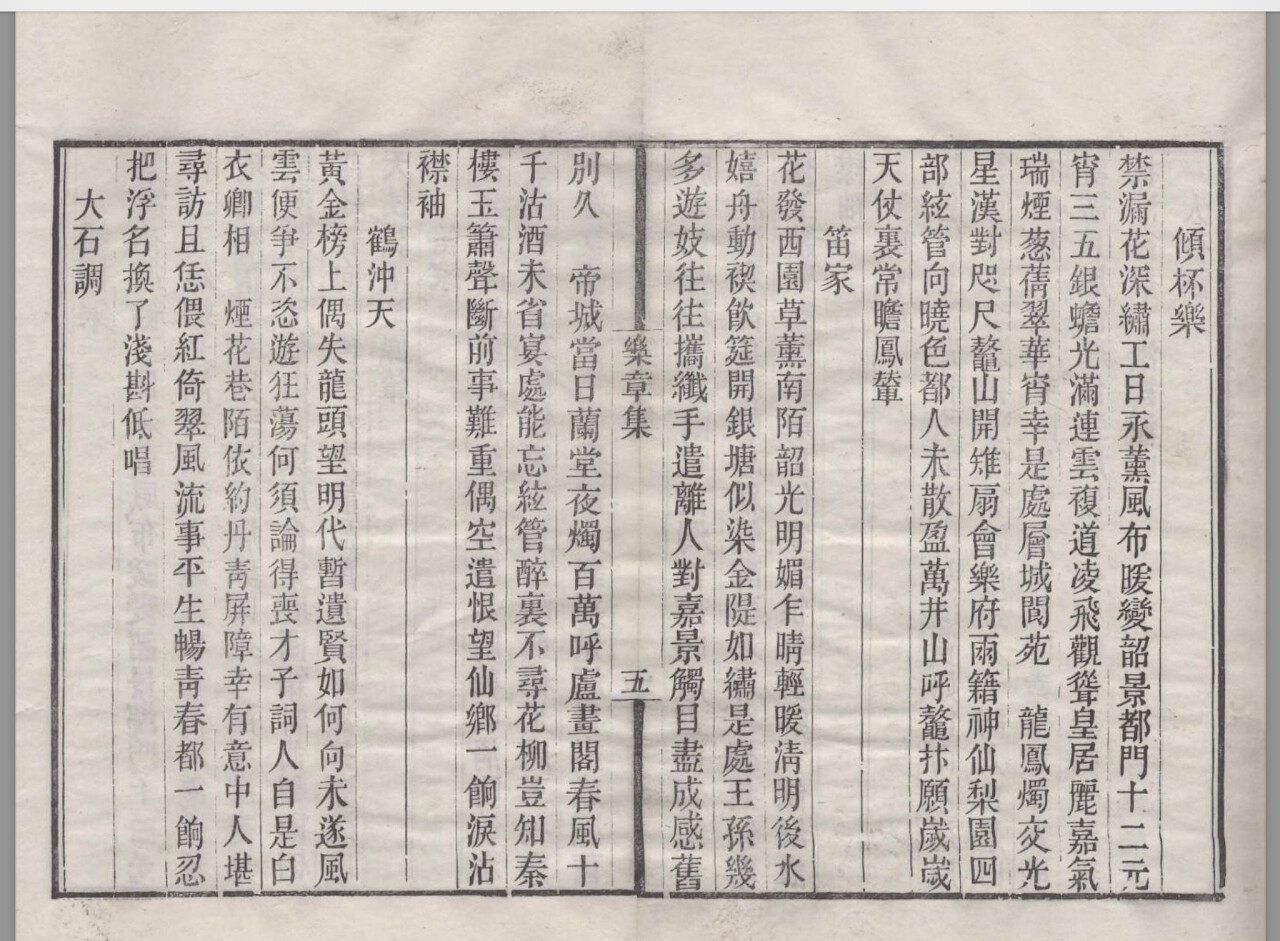 傾杯樂
禁漏花深繡工日永薰風布暖變韶景都門十二元
宵三五銀蟾光滿連雲複道凌飛觀聳皇居麗嘉氣
瑞煙葱蒨翠華宵幸是處層城閬苑　龍鳳燭交光
星漢對咫尺鼇山開雉扇會樂府兩籍神仙梨園四
部絃管向曉色都人未散盈萬井山呼鼇抃願歲歲
天仗裏常瞻鳳輦
笛家
花發西園草薰南陌韶光明媚乍晴輕暖淸明後水
嬉舟動禊飮筵開銀塘似染金隄如繡是處王孫幾
多遊妓往往攜纖手遣離人對嘉景觸目盡成感舊
樂章集
五
別久　帝城當日蘭堂夜燭百萬呼盧畫閣春風十
千沽酒未省宴處能忘絃管醉裏不尋花柳豈知秦
樓玉簫聲斷前事難重偶空遺恨望仙鄕一餉淚沾
襟袖
鶴沖天
黃金榜上偶失龍頭望明代暫遺賢如何向未遂風
雲便爭不恣遊狂蕩何須論得喪才子詞人自是白
衣卿相　煙花巷陌依約丹靑屏障幸有意中人堪
尋訪且恁偎紅倚翠風流事平生暢靑春都一餉忍
把浮名換了淺斟低唱
大石調